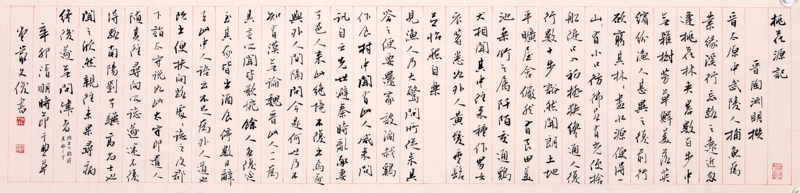 桃花源記
晉陶淵明撰
晉太原中武陵人捕魚為
業緣溪行忘路之遠近忽
逢桃花林夾岸數百步中
無雜樹芳草鮮美落英
繽紛漁人甚異之復前行
欲窮其林林盡水源便得一
山山有小口彷彿若有光便捨
船從口入初極狹纔通人復
行數十步豁然開朗土地
平曠屋舍儼然有良田美
池桑竹之屬阡陌交通雞
犬相聞其中往來種作男女
衣著悉如外人黃髮垂髫
並怡然自樂
見漁人乃大驚問所從來具
答之便要還家設酒殺雞
作食村中聞有此人咸來問
訊自云先世避秦時亂率妻
子邑人來此絕境不復出焉遂
與外人間隔問今是何世乃不
知有漢無論魏晉此人一一為
具言所聞皆歎惋餘人各復延
至其家皆出酒食停數日辭
去此中人語云不足為外人道也
既出便扶向路處處誌之及郡
下詣太守說如此太守即遣人
隨其往尋向所誌遂迷不復
得路南陽劉子驥高尚士也
聞之欣然親往未果尋病
終後遂無問津者
辛卯清明時節
書